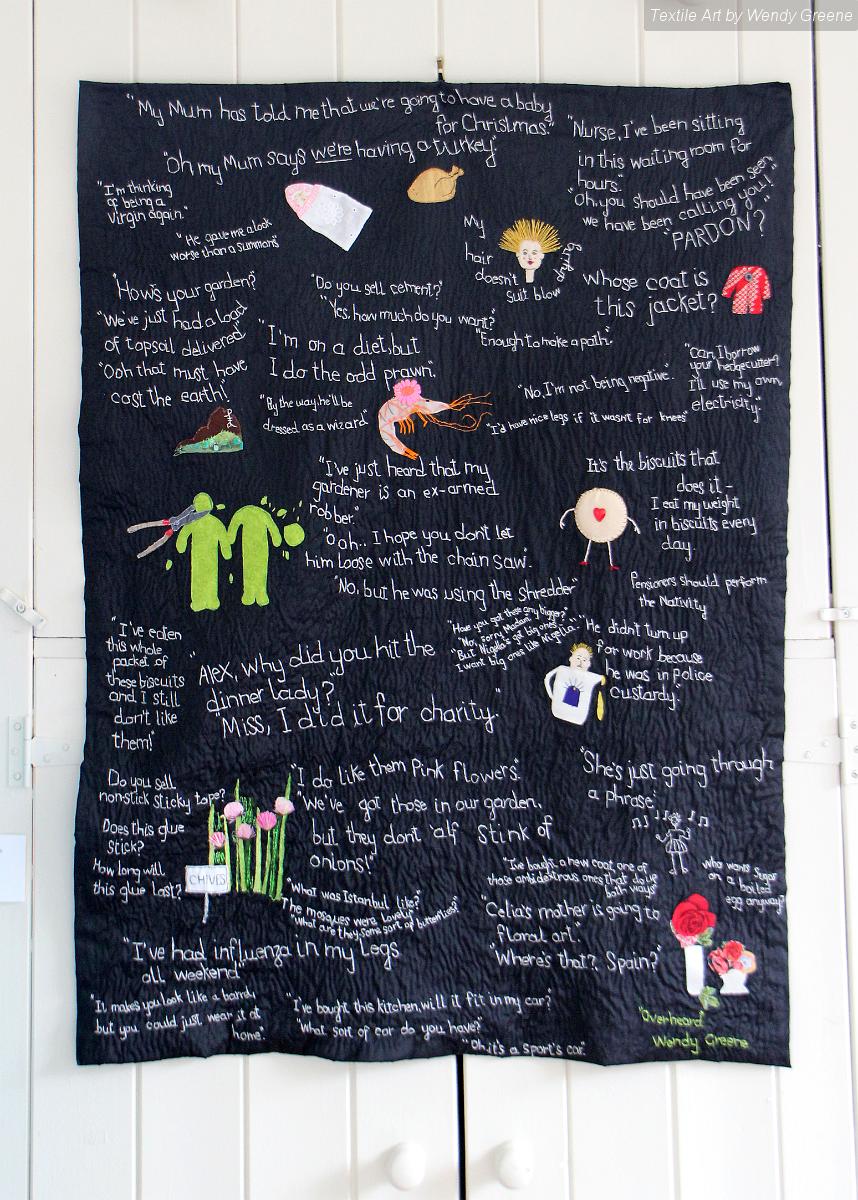 Textile Art by Wendy Greene
"My Mum has told me that we're going to have a baby
for Christmas."
"Oh my Mum says we're having a turkey"
"Nurse, I've been sitting
in this waiting room for
hours."
"Oh, you should have been seen
we have been calling you!"
"PARDON?"
"I'm thinking
of being a
virgin again."
"He gave me a look
worse than a summons"
My
hair
doesn't
suit blow
drying
Whose coat is
this jacket?
"How's your garden?"
"We've just had a load
of topsoil delivered"
"Ooh that must have
cost the earth!"
"Do you sell cement?"
"Yes, how much do you want?"
"Enough to make a path."
"I'm on a diet, but
I do the odd prawn."
"By the way, he'll be
dressed as a wizard"
"No, I'm not being negitive."
"I'd have nice legs if it wasn't for knees"
"Can I borrow
your hedgecutter?
I'll use my own
electricity."
"I've just heard that my
gardener is an ex-armed
robber."
"Ooh.. I hope you don't let
him loose with the chain saw".
"No, but he was using the shredder"
It's the biscuits that
does it -
I eat my weight
in biscuits every
day.
Pensioners should perform
the Nativity
"I've eaten
this whole
packet of
these biscuits
and I still
don't like
them!"
"Alex, why did you hit the
dinner lady?"
"Miss, I did it for charity."
"Have you got these any bigger?"
"No, sorry Madam"
"But Nigella's got big ones -
I want big ones like Nigella."
"He didn't turn up
for work because
he was in Police
Custardy."
Do you sell
non-stick sticky tape?
Does this glue
stick?
How long will
this glue last?
CHIVES
"I do like them Pink flowers."
"We've got those in our garden,
but they dont 'alf stink of
onions!"
"She's just going through
a phrase"
"What was Istanbul like?"
The mosques were lovely"
"What are they, some sort of butterflies?"
"I've bought a new coat, one of
those ambidextrous ones that do up
both ways"
Who wants Sugar
on a boiled
egg anyway?
"Celia's mother is going to
floral art."
"Where's that? Spain?"
"I've had influenza in my legs
all weekend"
"It makes you look like a bandy
but you could just wear it at
home."
"I've bought this kitchen, will it fit in my car?
"What sort of car do you have?"
"Oh, it's a sport's car."
"Overheard"
Wendy Greene